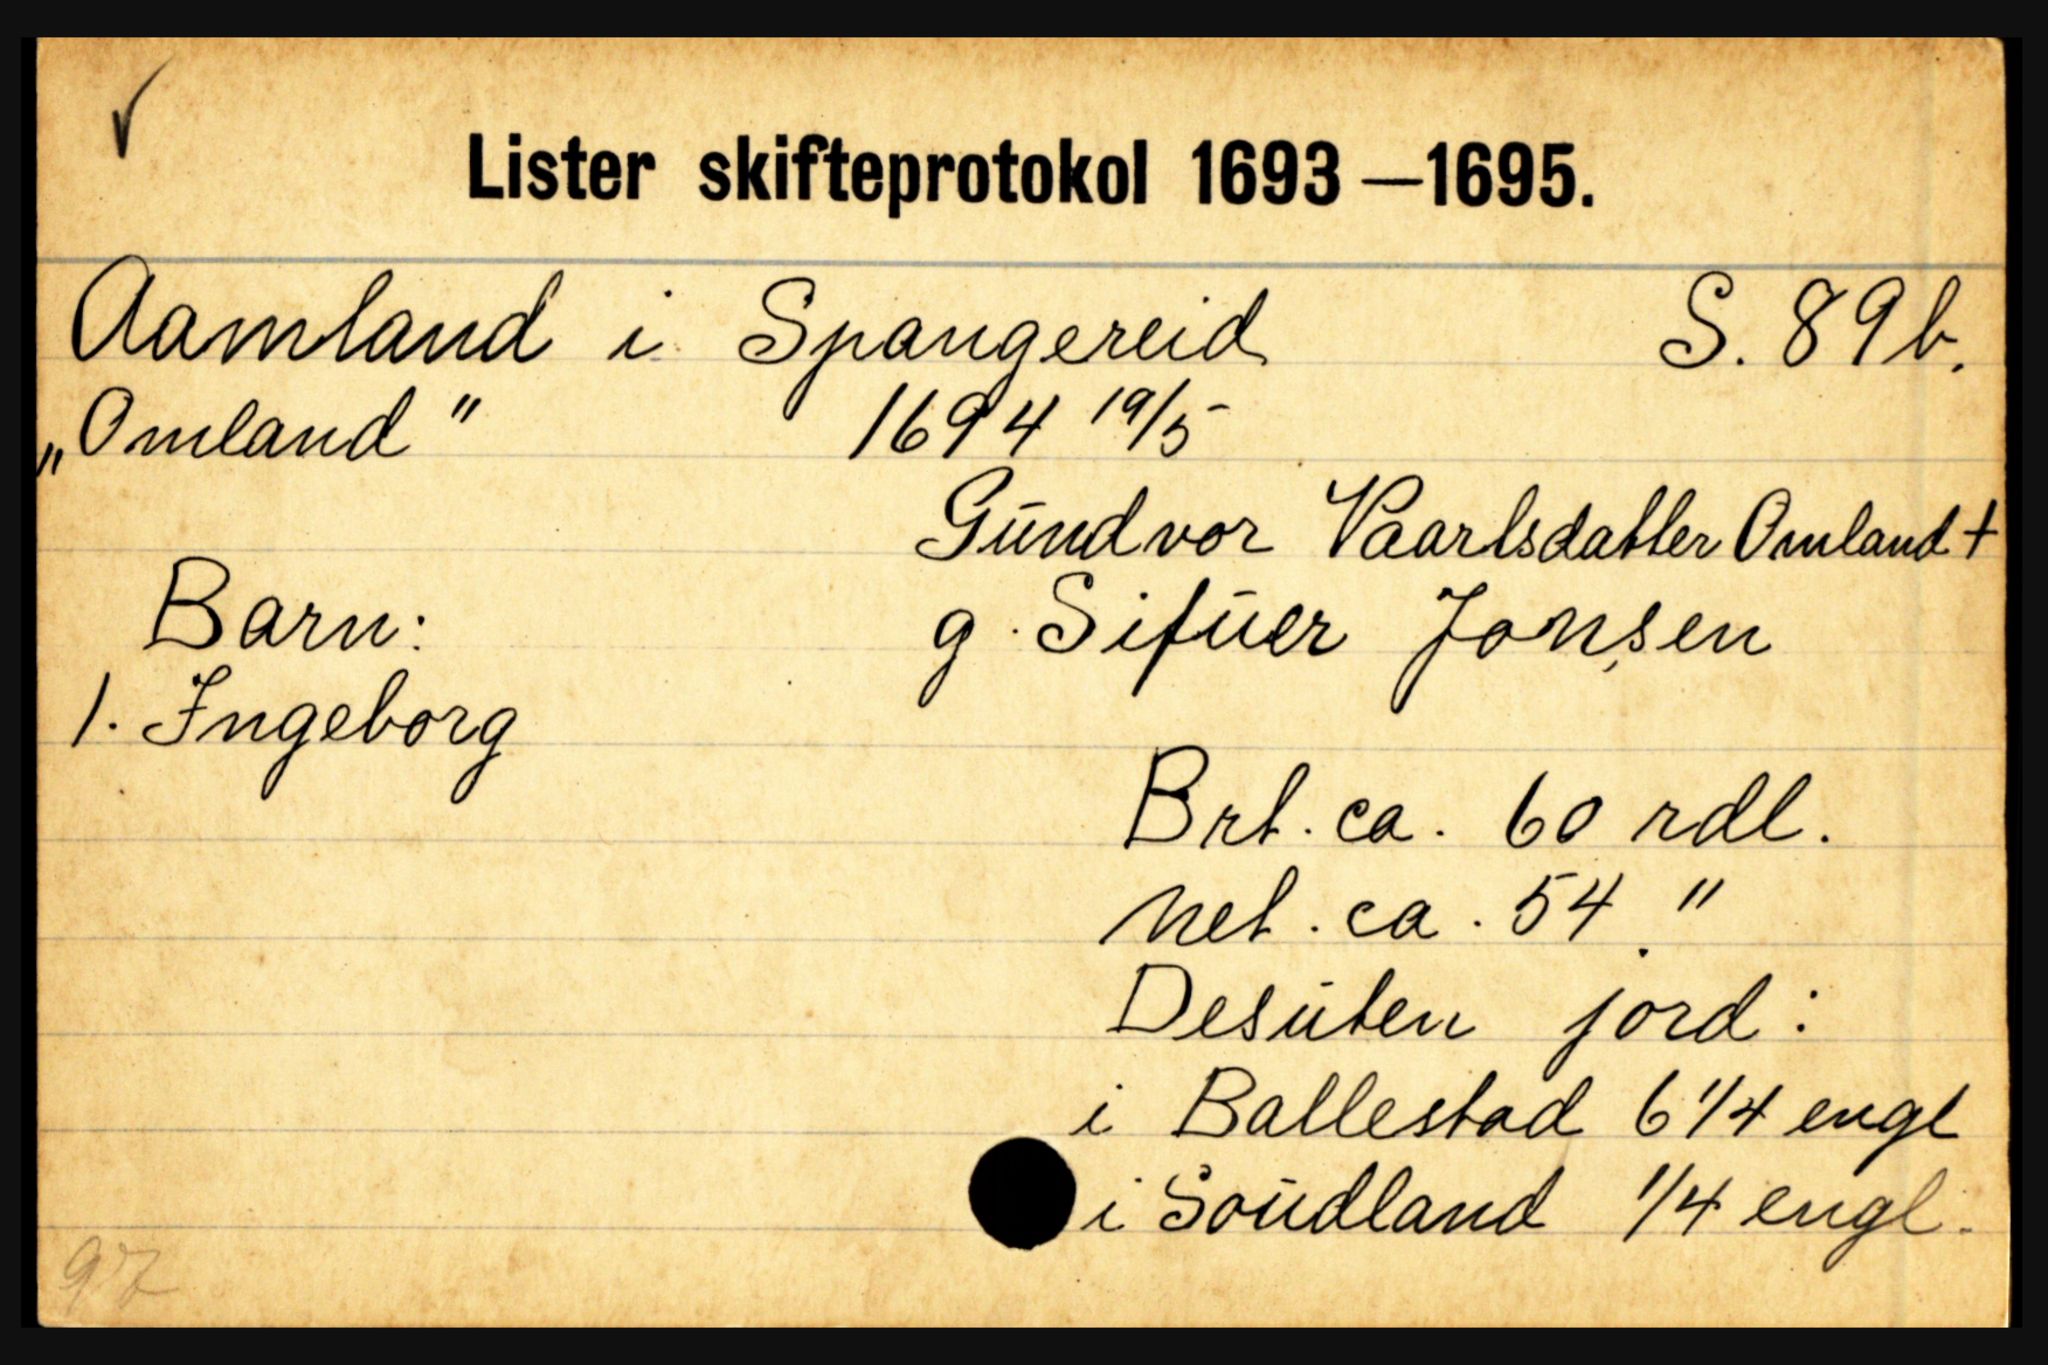 Lister skifteprotokol 1693—1695.
Aamland i Spangereid S. 89b.
„Omland" 1694 19/5
Gŭndvor Vaarlsdatter Omland +
Barn: g. Sifŭer Jonsen
1. Ingeborg
Brt. ca. 60 rdl.
net. ca. 54 "
Desŭten jord:
i Ballestad 6 1/4 engl
i Soŭdland 1/4 engl.
97